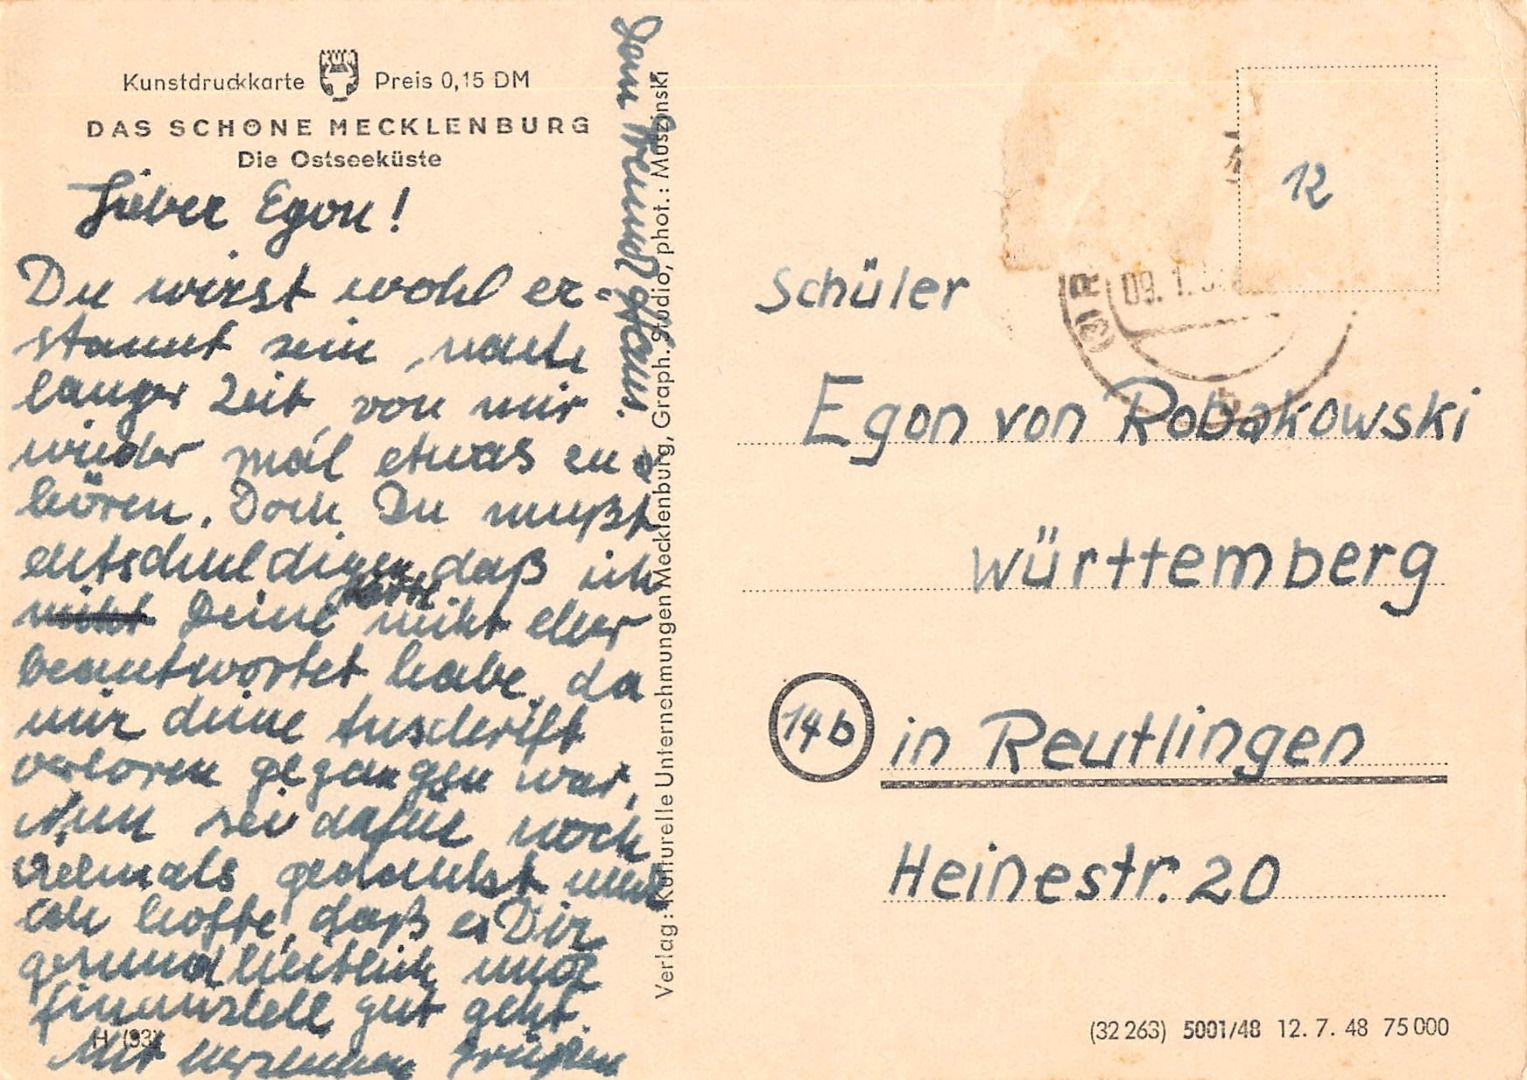 Kunstdruckkarte KUM Preis 0,15 DM
DAS SCHÖNE MECKLENBURG
Die Ostseeküste
Lieber Egon!
Du wirst wohl er-
staunt sein, nach
langer Zeit, von mir
wieder mal etwas zu
hören. Doch Du mußt
entschuldigen, daß ich
nicht Deine Karte nicht eher
beantwortet habe, da
mir deine Anschrift
verloren gegangen war.
Nun sei dafür noch
vielmals gedankt und
ich hoffe, daß es Dir
gesundheitlich und
finanziell gut geht.
Mit herzlichen Grüßen
Dein Freund Hans.
Verlag: Kulturelle Unternehmungen Mecklenburg, Graph. Studio, phot.: Muszinski
12
R
09. 1.
Schüler
Egon von Robakowski
Württemberg
14b in Reutlingen
Heinestr. 20
(32 263) 5001/48 12. 7. 48 75 000